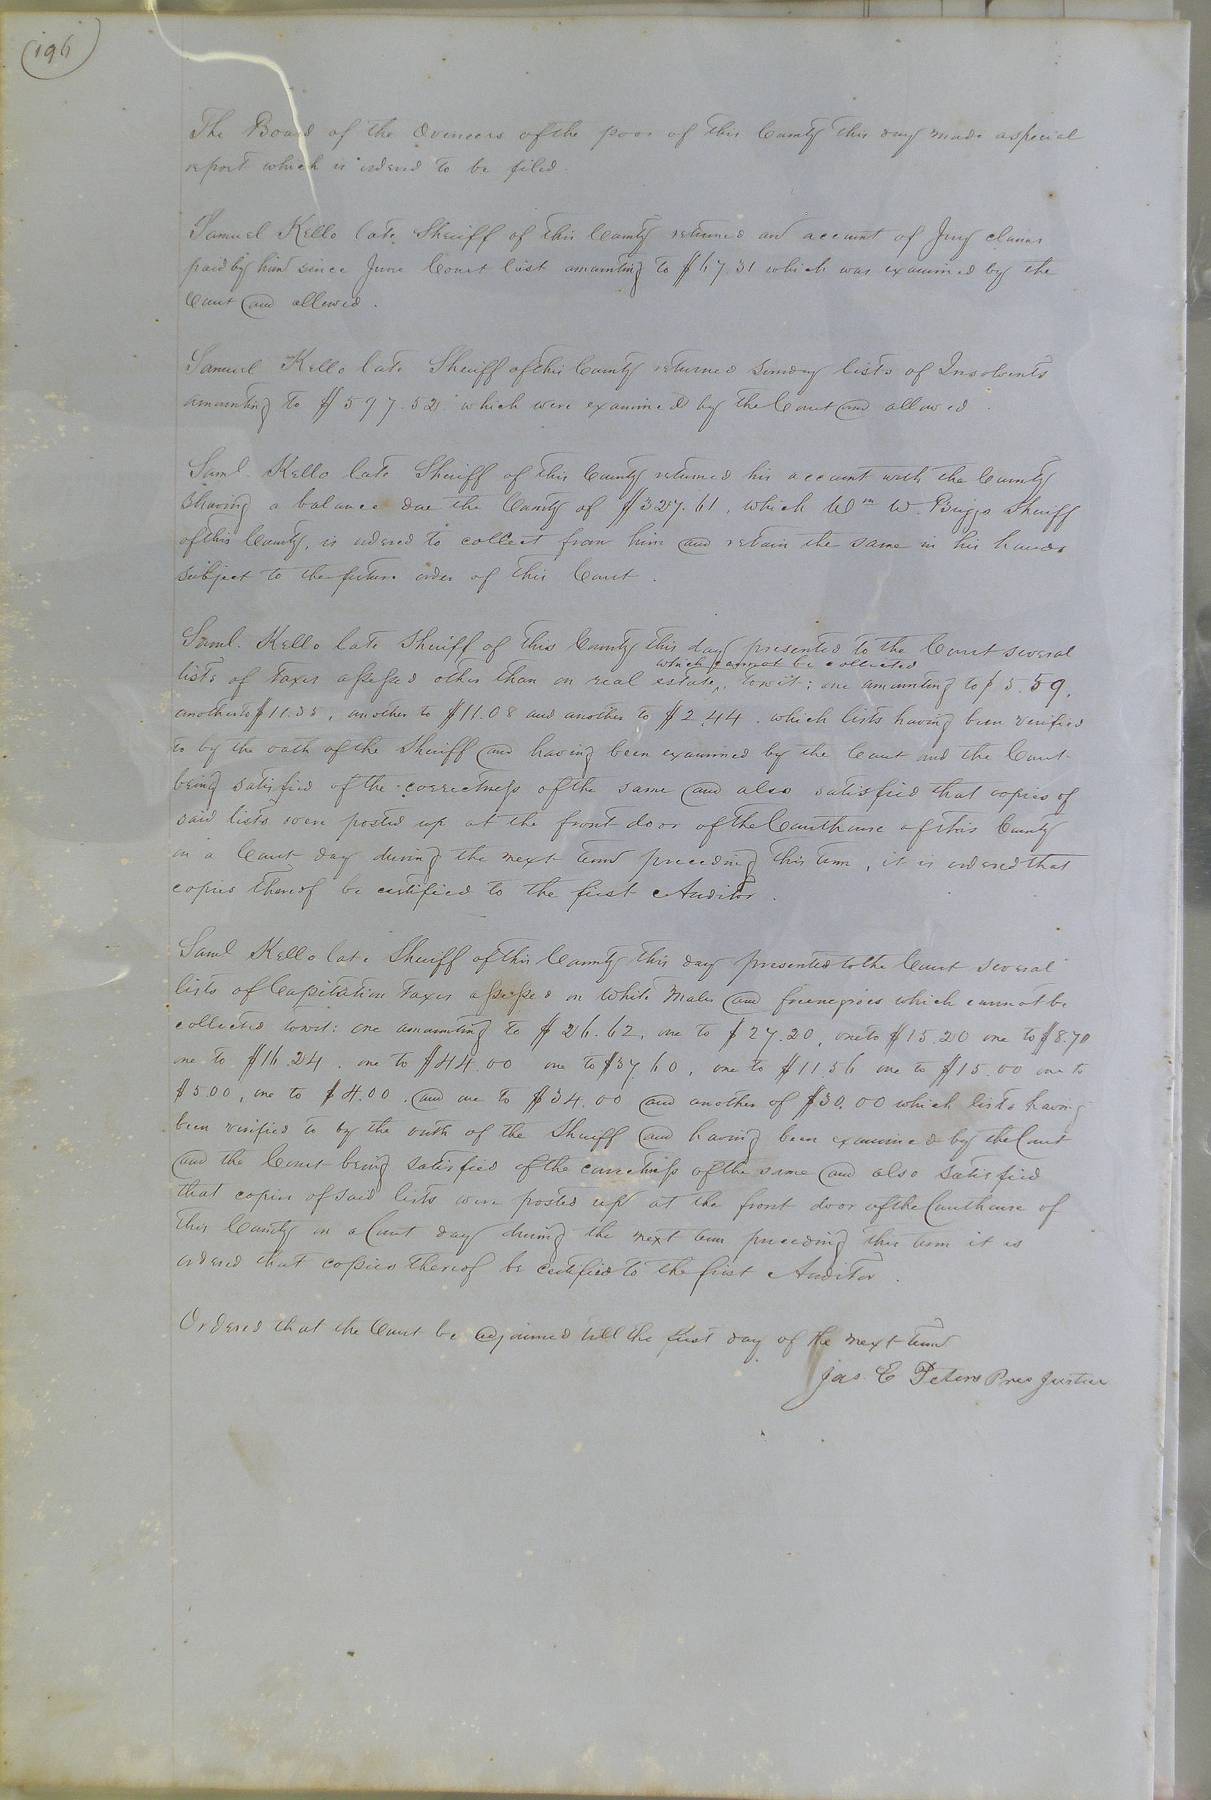 196
The Board of the Overseers of the poor of this County this day made a special
report which is ordered to be filed.
Samuel Kello late Sheriff of this County returned an account of Jury claims
paid by him since June Court last amounting to $67.31 which was examined by the
Court and allowed.
Samuel Kello late Sheriff of this County returned sundry lists of Insolvents
amounting to $597.52 which were examined by the Court and allowed.
Saml Kello late Sheriff of this County returned his account with the County
Shewing a balance due the County of $327.61, which Wm W. Briggs Sheriff
of this County, is ordered to collect from him and retain the same in his hands
subject to the future order of this Court.
Saml. Kello late Sheriff of this County this day presented to the Court several
which cannot be collected
lists of taxes assessed other than on real estate, towit: one amounting to $5.59,
another to $11.35, another to $11.08 and another to $2.44. which lists having been verified
to by the oath of the Sheriff and having been examined by the Court and the Court
being satisfied of the correctness of the same and also satisfied that copies of
said lists were posted up at the front door of the Courthouse of this County
on a Court day during the next term preceding this term, it is ordered that
copies thereof be certified to the first Auditor.
Saml Kello late Sheriff of this County this day presented to the Court several
lists of Capitation taxes assessed on White Males and free negroes which cannot be
collected towit: one amounting to $26.62, one to $27.20, one to $15.20 one to $8.70
one to $16.24. one to $44.00 one to $37.60, one to $11.56 one to $15.00 one to
$5.00, one to $4.00. and one to $34.00 and another of $30.00 which lists having
been verified to by the oath of the Sheriff and having been examined by the Court
and the Court being satisfied of the correctness of the same and also satisfied
that copies of said lists were posted up at the front door of the Courthouse of
this County on a Court day during the next term preceding this term it is
ordered that copies thereof be certified to the first Auditor.
Ordered that the Court be adjourned till the first day of the next term
Jas. E Peters Pres Justice